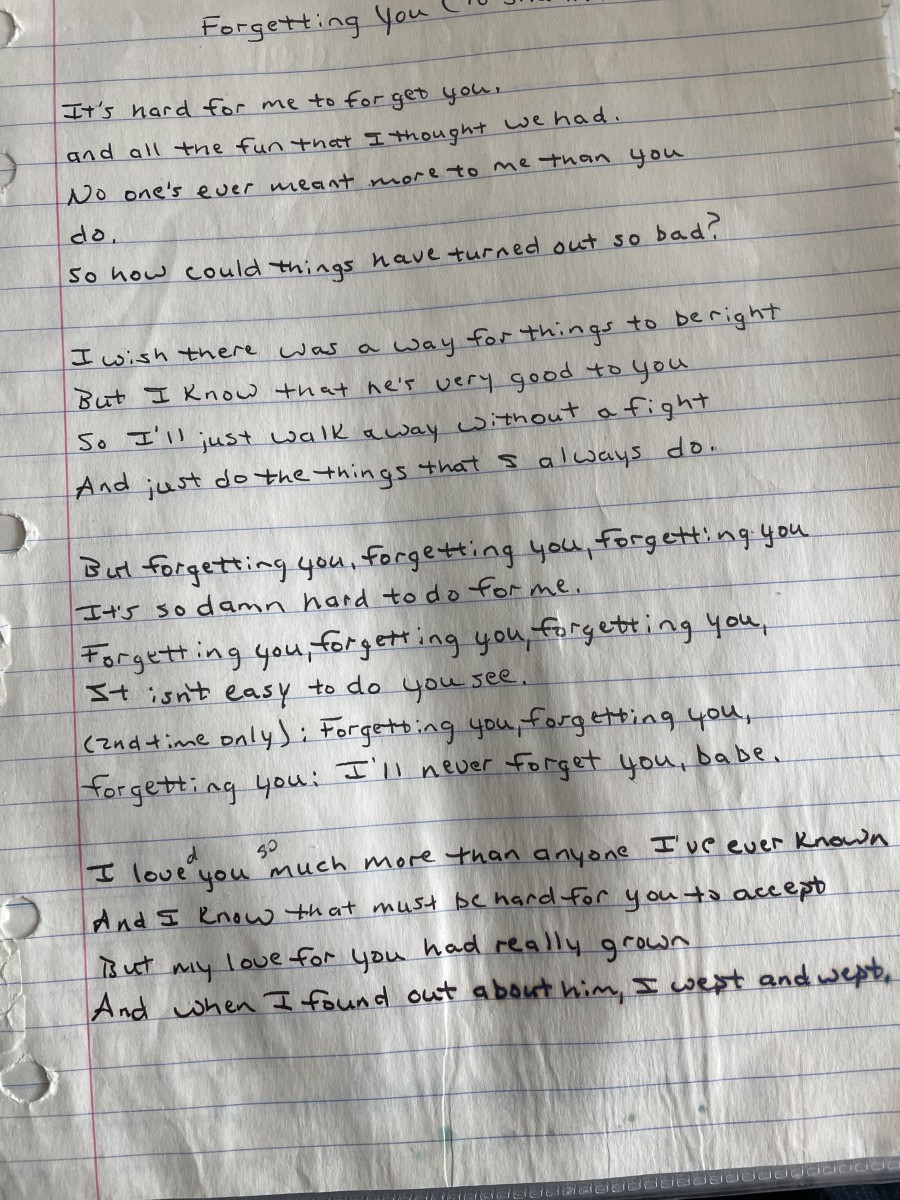 Forgetting You (
It's hard for me to forget you,
and all the fun that I thought we had.
No one's ever meant more to me than you
do.
So how could things have turned out so bad?
I wish there was a way for things to be right
But I know that he's very good to you
So I'll just walk away without a fight
And just do the things that I always do.
But forgetting you, forgetting you, forgetting you
It's so damn hard to do for me.
Forgetting you, forgetting you, forgetting you,
It isn't easy to do you see.
(2nd time only): Forgetting you, forgetting you,
forgetting you: I'll never forget you, babe.
I loved you so much more than anyone I've ever known
And I know that must be hard for you to accept
But my love for you had really grown
And when I found out about him, I wept and wept.